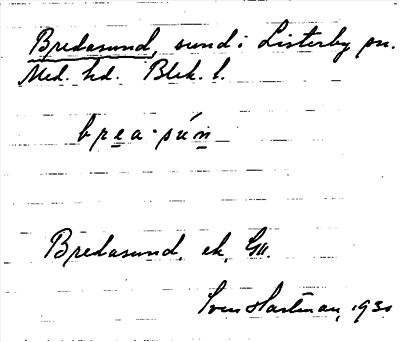 Bredasund, sund i Listerby sn.
Med. hd. Blek. l.
brea·sún
Bredasund, ek,
Sven Hartman, 1930